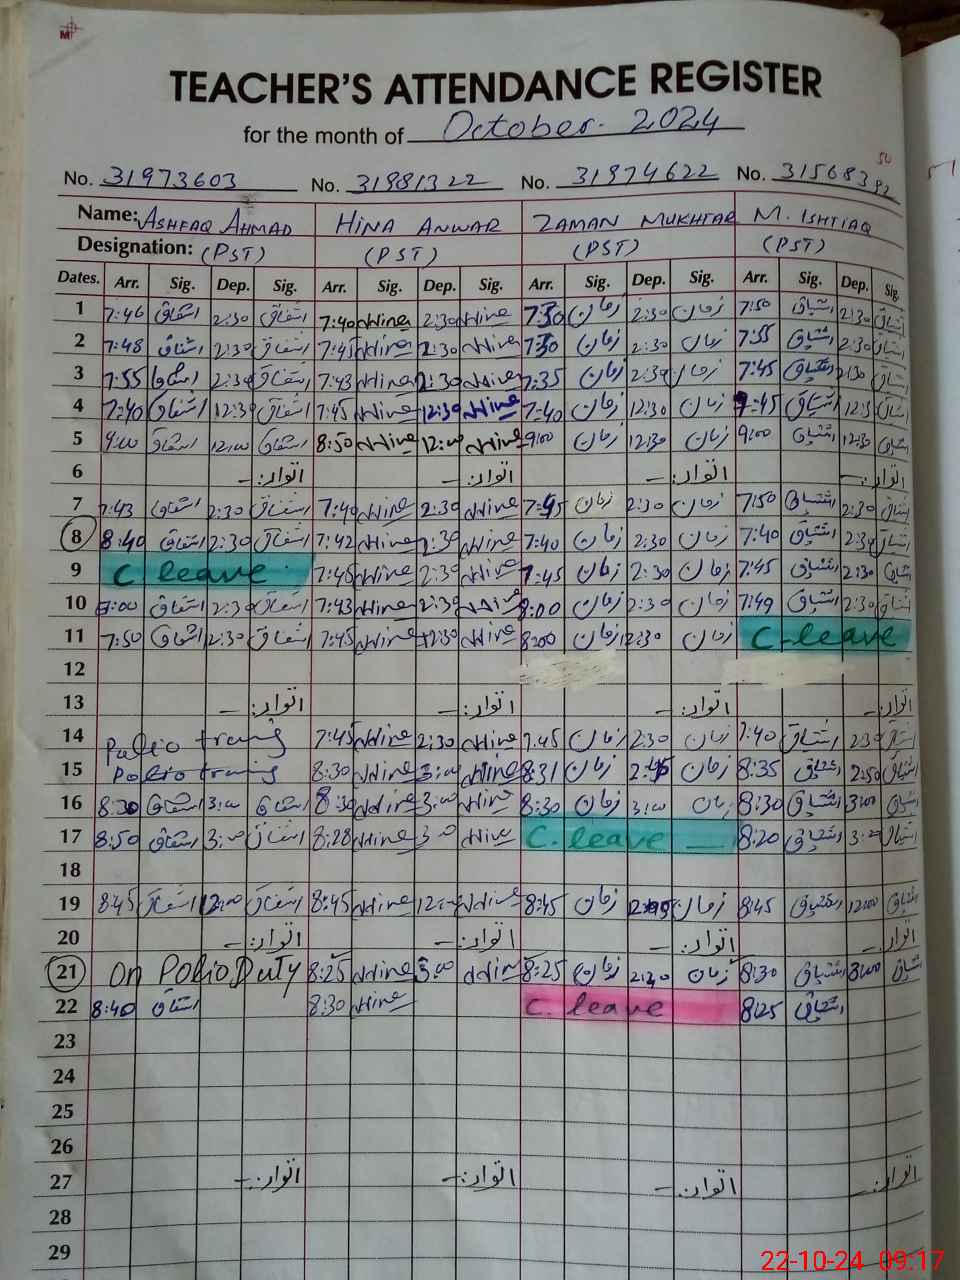 TEACHER'S ATTENDANCE REGISTER
for the month of October. 2024
No. 31973603 No. 31981322 No. 31974622 No. 31568392
50
Name: ASHFAQ AHMAD HINA ANWAR ZAMAN MUKHTAR M. ISHTIAQ
Designation: (PST) (PST) (PST) (PST)
Dates. Arr. Sig. Dep. Sig. Arr. Sig. Dep. Sig. Arr. Sig. Dep. Sig. Arr. Sig. Dep. Sig.
1 7:46 اشفاق 2:30 اشفاق 7:40 Hina 2:30 Hina 7:30 زمان 2:30 زمان 7:50 اشتیاق 2:30 اشتیاق
2 7:48 اشفاق 2:30 اشفاق 7:45 Hina 2:30 Hina 7:30 زمان 2:30 زمان 7:55 اشتیاق 2:30 اشتیاق
3 7:55 اشفاق 2:30 اشفاق 7:43 Hina 2:30 Hina 7:35 زمان 2:30 زمان 7:45 اشتیاق 2:30 اشتیاق
4 7:40 اشفاق 12:30 اشفاق 7:45 Hina 12:30 Hina 7:40 زمان 12:30 زمان 7:45 اشتیاق 12:3 اشتیاق
5 9:00 اشفاق 12:00 اشفاق 8:50 Hina 12:00 Hina 9:00 زمان 12:30 زمان 9:00 اشتیاق 12:30 اشتیاق
6 اتوار:ـ اتوار:ـ اتوار:ـ اتوار:ـ
7 7:43 اشفاق 2:30 اشفاق 7:40 Hina 2:30 Hina 7:45 زمان 2:30 زمان 7:50 اشتیاق 2:30 اشتیاق
8 8:40 اشفاق 2:30 اشفاق 7:42 Hina 2:30 Hina 7:40 زمان 2:30 زمان 7:40 اشتیاق 2:30 اشتیاق
9 C. leave 7:45 Hina 2:30 Hina 7:45 زمان 2:30 زمان 7:45 اشتیاق 2:30 اشتیاق
10 اشفاق 2:30 اشفاق 7:43 Hina 2:30 Hina 8:00 زمان 2:30 زمان 7:49 اشتیاق 2:30 اشتیاق
11 7:50 اشفاق 2:30 اشفاق 7:45 Hina 2:30 Hina 8:00 زمان 2:30 زمان C-leave
12
13 اتوار:ـ اتوار:ـ اتوار:ـ اتوار:ـ
14 Polio traing 7:45 Hina 2:30 Hina 7:45 زمان 2:30 زمان 7:40 اشتیاق 2:30 اشتیاق
15 Polio traing 8:30 Hina 3:00 Hina 8:31 زمان 2:45 زمان 8:35 اشتیاق 2:50 اشتیاق
16 8:30 اشفاق 3:00 اشفاق 8:30 Hina 3:00 Hina 8:30 زمان 3:00 زمان 8:30 اشتیاق 3:00 اشتیاق
17 8:50 اشفاق 3:00 اشفاق 8:28 Hina 3:00 Hina C. leave — 8:20 اشتیاق 3:20 اشتیاق
18
19 8:45 اشفاق 12:00 اشفاق 8:45 Hina 12:00 Hina 8:45 زمان زمان 8:45 اشتیاق 12:00 اشتیاق
20 اتوار:ـ اتوار:ـ اتوار:ـ اتوار:ـ
21 On Polio Duty 8:25 Hina 3:00 Hina 8:25 زمان 2:30 زمان 8:30 اشتیاق 3:00 اشتیاق
22 8:40 اشفاق 8:30 Hina C. leave 8:25 اشتیاق
23
24
25
26
27 اتوار:ـ اتوار:ـ اتوار:ـ اتوار:ـ
28
29
22-10-24 09:17